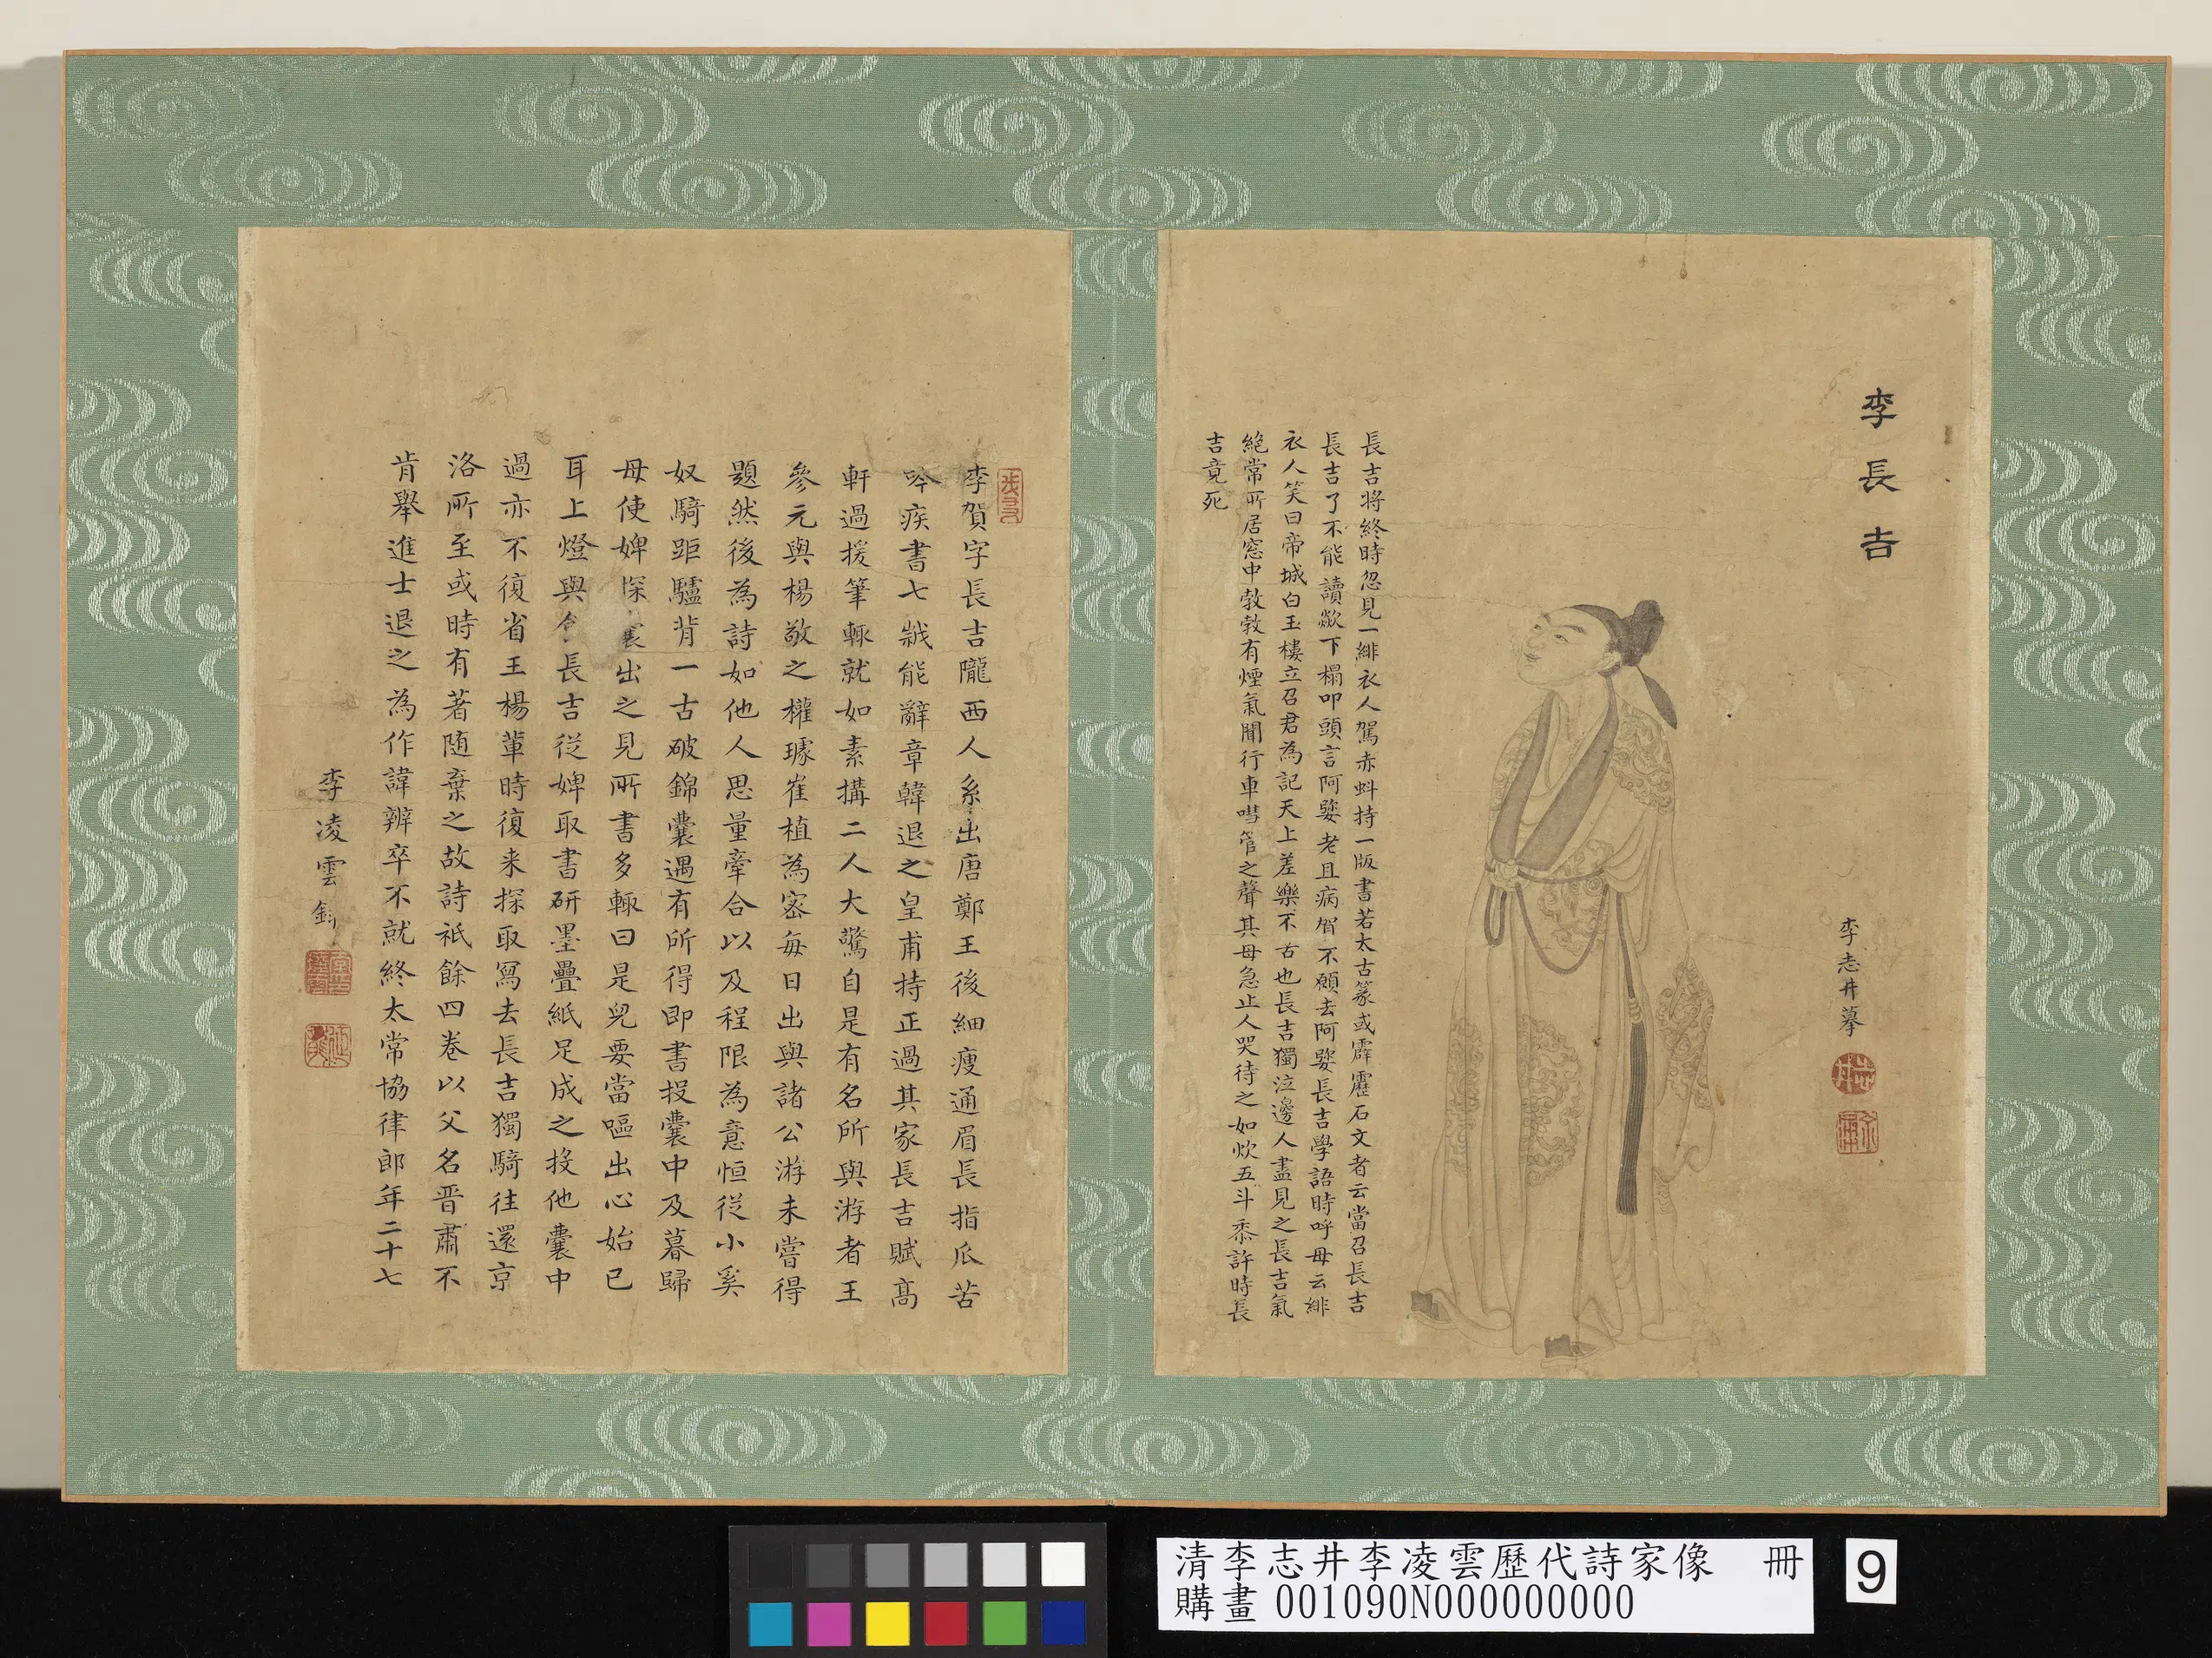 李長吉
李志井摹
長吉將終時忽見一緋衣人駕赤蚪持一版書若太古篆或霹靂石文者云當召長吉
長吉了不能讀歘下榻叩頭言阿㜷老且病賀不願去阿㜷長吉學語時呼母云緋
衣人笑曰帝城白玉樓立召君為記天上差樂不古也長吉獨泣邊人盡見之長吉氣
絕常所居窓中㪍㪍有煙氣聞行車嘒管之聲其母急止人哭待之如炊五斗黍許時長
吉竟死
李賀字長吉隴西人系出唐鄭王後細瘦通眉長指爪苦
吟疾書七歲能辭章韓退之皇甫持正過其家長吉賦高
軒過援筆輒就如素搆二人大驚自是有名所與游者王
參元與楊敬之權璩崔植為密每日出與諸公游未嘗得
題然後為詩如他人思量牽合以及程限為意恒從小奚
奴騎距驢背一古破錦囊遇有所得即書投囊中及暮歸
母使婢探囊出之見所書多輒曰是兒要當嘔出心始已
耳上燈與食長吉從婢取書研墨疊紙足成之投他囊中
過亦不復省王楊輩時復来探取寫去長吉獨騎往還京
洛所至或時有著随棄之故詩祇餘四卷以父名晋肅不
肯舉進士退之為作諱辨卒不就終太常協律郎年二十七
李凌雲
清李志井李凌雲歷代詩家像 冊
購畫 001090N000000000
9